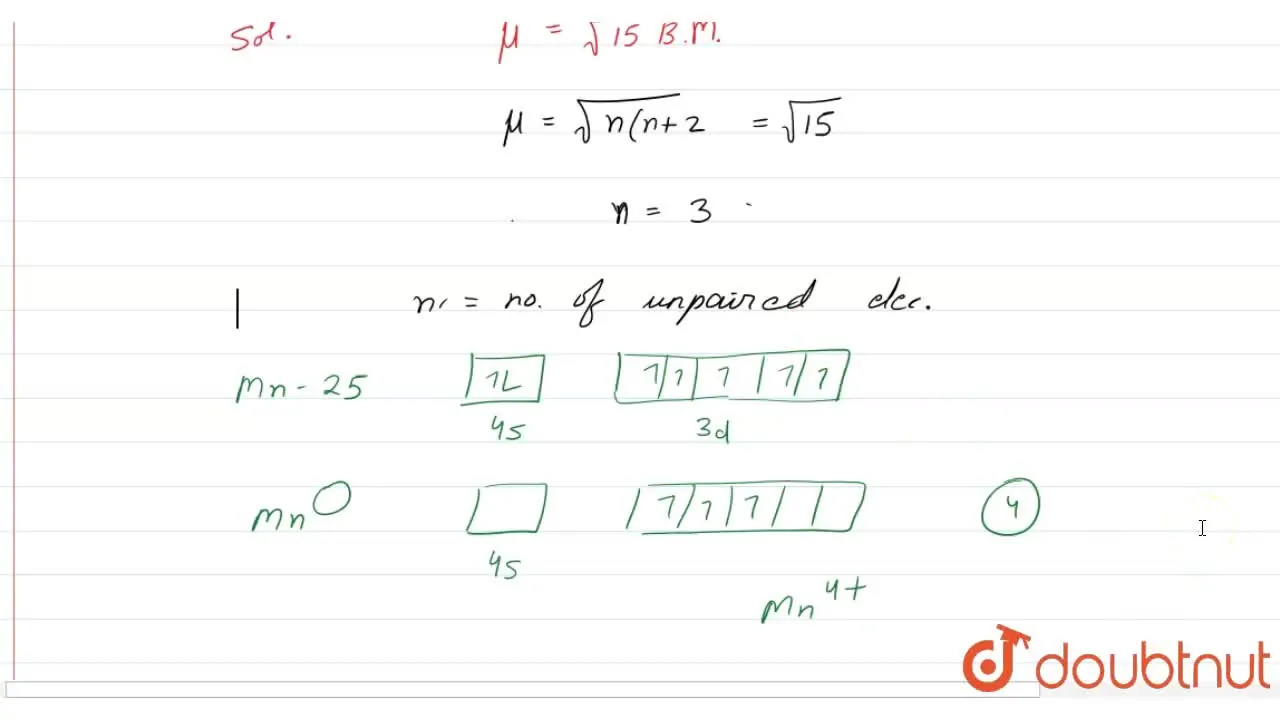 Sol. μ = √15 B.M.
μ = √n(n+2 = √15
n = 3
n = no. of unpaired elec.
Mn - 25 1L 1 1 1 1 1
4s 3d
Mn 1 1 1 4
4s
Mn4+
doubtnut